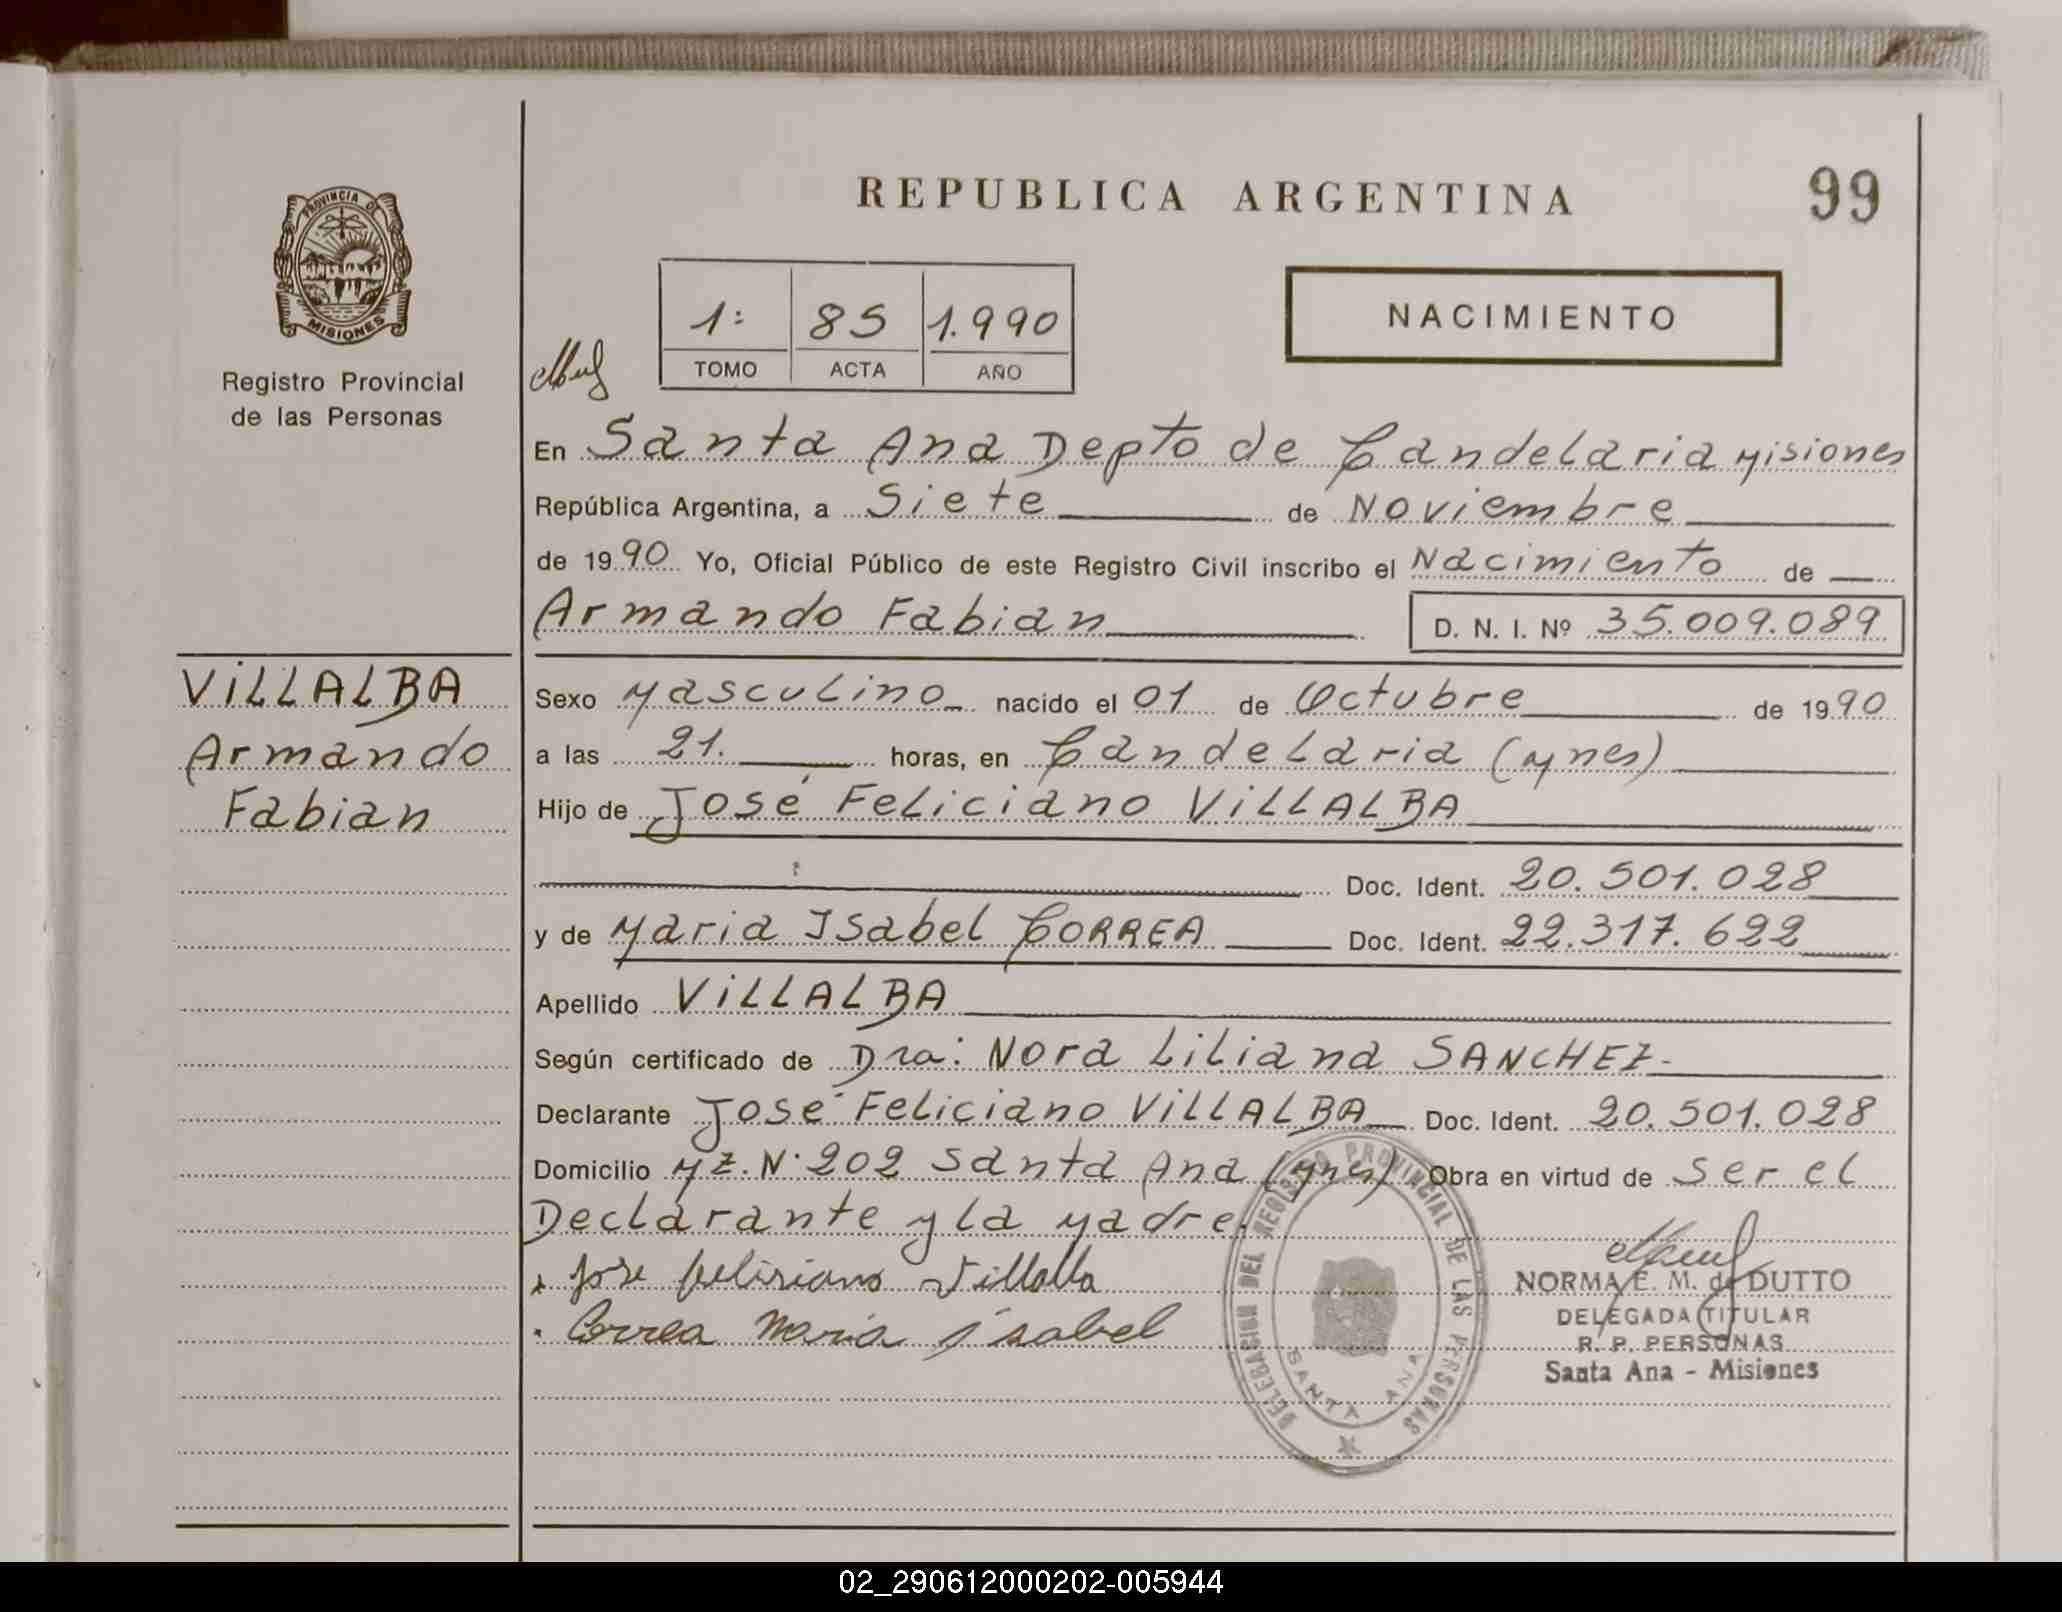 REPUBLICA ARGENTINA
99
PROVINCIA DE
MISIONES
Registro Provincial
de las Personas
1º 85 1.990
TOMO ACTA AÑO
NACIMIENTO
En Santa Ana Depto de Candelaria Misiones
República Argentina, a Siete de Noviembre
de 1990 Yo, Oficial Público de este Registro Civil inscribo el Nacimiento de
Armando Fabian
D. N. I. Nº 35.009.089
VILLALBA
Armando
Fabian
Sexo Masculino nacido el 01 de Octubre de 1990
a las 21. horas, en Candelaria (Mnes)
Hijo de José Feliciano VILLALBA
Doc. Ident. 20.501.028
y de Maria Isabel CORREA Doc. Ident. 22.317.622
Apellido VILLALBA
Según certificado de Dra: Nora Liliana SANCHEZ-
Declarante José Feliciano VILLALBA Doc. Ident. 20.501.028
Domicilio Mz. Nº 202 Santa Ana (Mnes) Obra en virtud de ser el
Declarante y la Madre.
Jose felisiano Villalba
Correa Maria isabel
DELEGACION DEL REGISTRO PROVINCIAL DE LAS PERSONAS
SANTA ANA
NORMA E. M. de DUTTO
DELEGADA TITULAR
R. P. PERSONAS
Santa Ana - Misiones
02_290612000202-005944